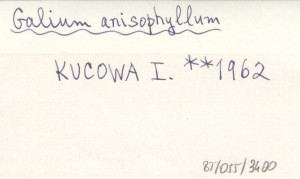 Galium anisophyllum
KUCOWA I. **1962
BI/OII/3400